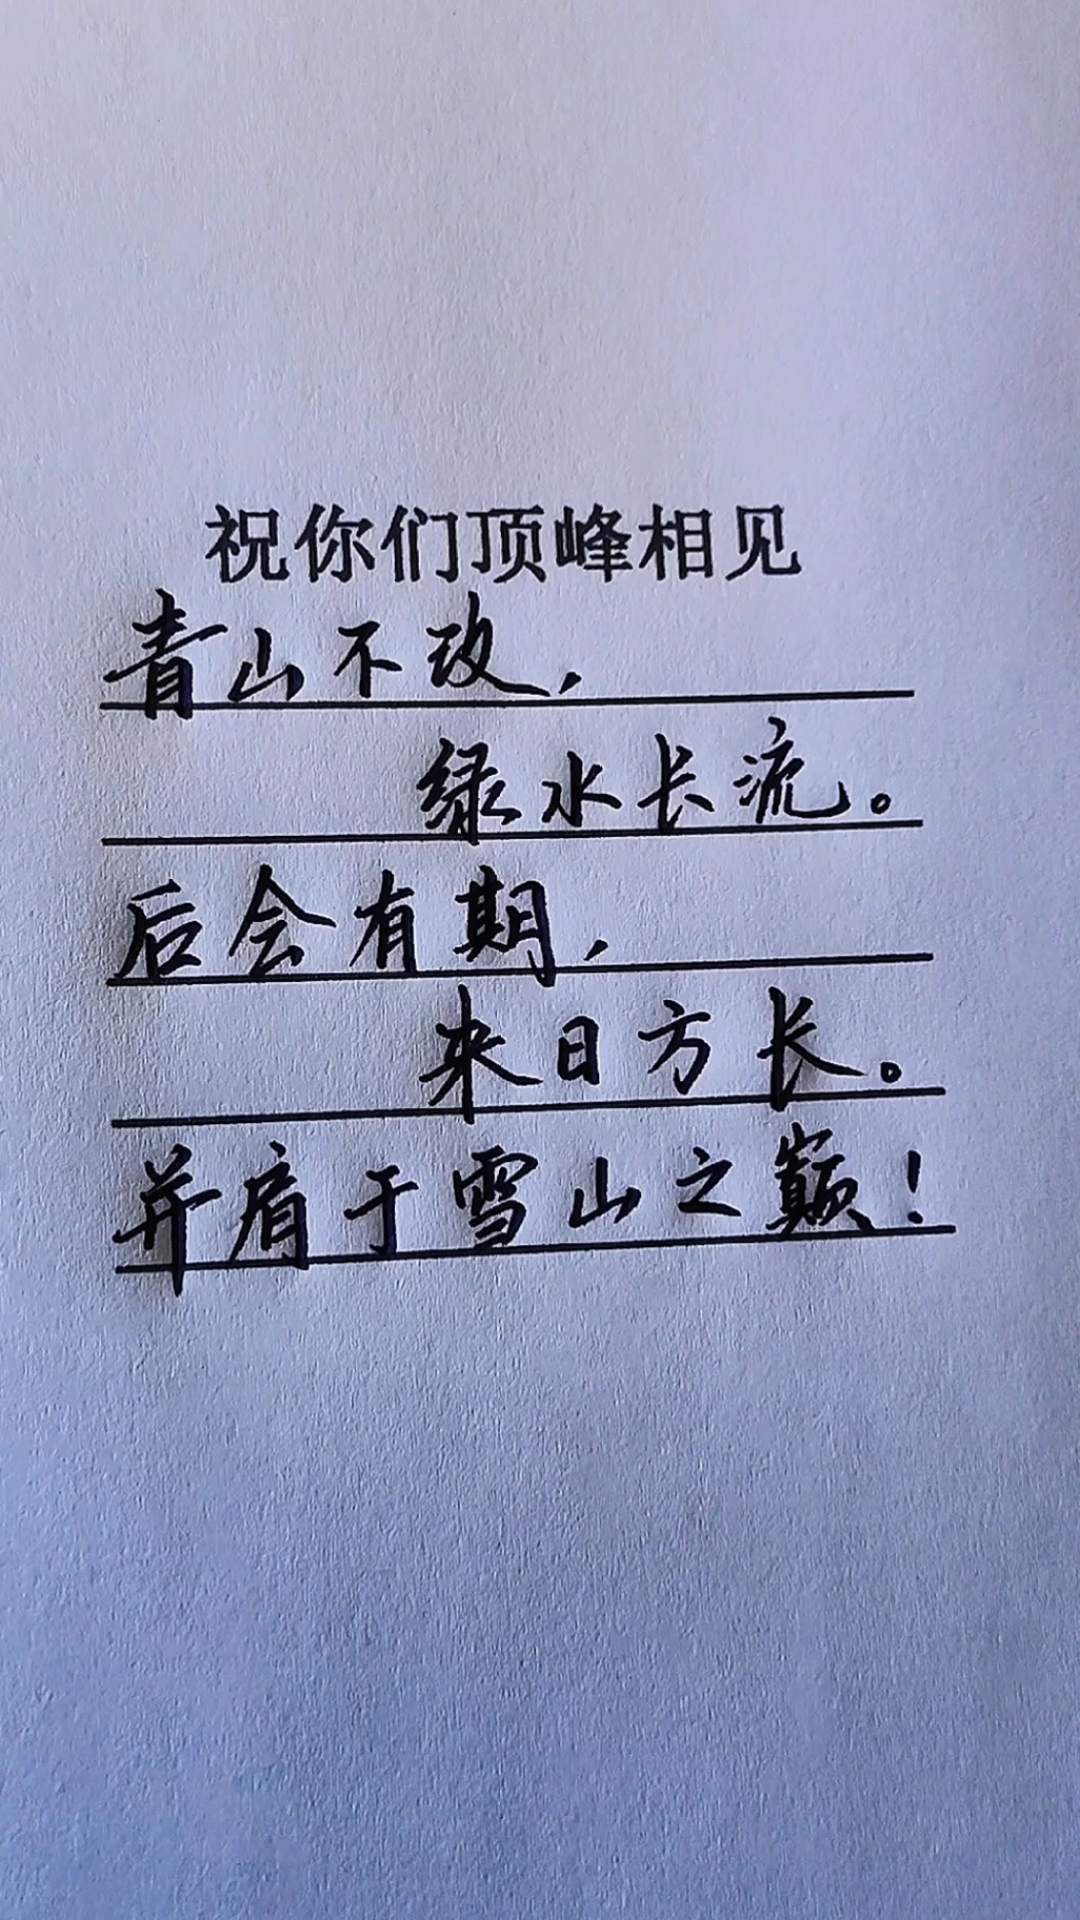 祝你们顶峰相见
青山不改，
绿水长流。
后会有期，
来日方长。
并肩于雪山之巅！